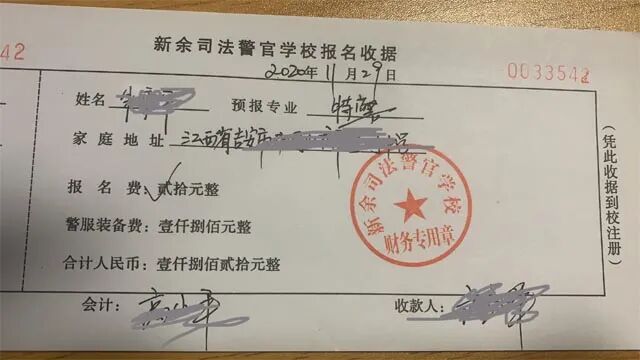 新余司法警官学校报名收据
42
2020年11月29日
0033542
姓名 预报专业 特警
家庭地址 江西省 号
报名费:贰拾元整
警服装备费:壹仟捌佰元整
合计人民币:壹仟捌佰贰拾元整
新余司法警官学校
财务专用章
会计: 收款人:
(凭此收据到校注册)